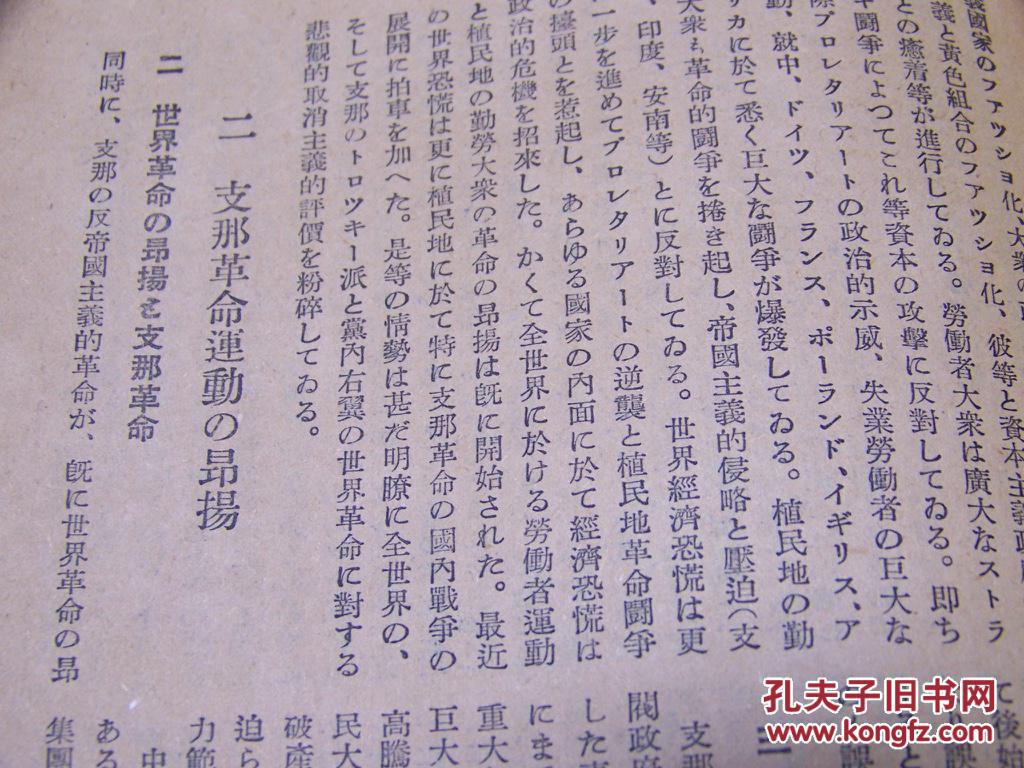 義國家のファッショ化、大衆の
義と黃色組合のファッショ化、彼等と資本主義政
との癒着等が進行してゐる。勞働者大衆は廣大なストラ
キ鬪爭によつてこれ等資本の攻擊に反對してゐる。卽ち
際プロレタリアートの政治的示威、失業勞働者の巨大な
動、就中、ドイツ、フランス、ポーランド、イギリス、ア
リカに於て悉く巨大な鬪爭が爆發してゐる。植民地の勤
大衆も革命的鬪爭を捲き起し、帝國主義的侵略と壓迫(支
、印度、安南等)とに反對してゐる。世界經濟恐慌は更
一步を進めてプロレタリアートの逆襲と植民地革命鬪爭
の擡頭とを惹起し、あらゆる國家の內面に於て經濟恐慌は
政治的危機を招來した。かくて全世界に於ける勞働者運動
と植民地の勤勞大衆の革命の昻揚は旣に開始された。最近
の世界恐慌は更に植民地に於て特に支那革命の國內戰爭の
展開に拍車を加へた。是等の情勢は甚だ明瞭に全世界の、
そして支那のトロツキー派と黨內右翼の世界革命に對する
悲觀的取消主義的評價を粉碎してゐる。
二 支那革命運動の昻揚
二 世界革命の昻揚と支那革命
同時に、支那の反帝國主義的革命が、旣に世界革命の昻
て後始
支那
閥政府
した
にま
重大
巨大
高騰
民大
破產
迫ら
力範
中
ある
集團
孔夫子旧书网
www.kongfz.com